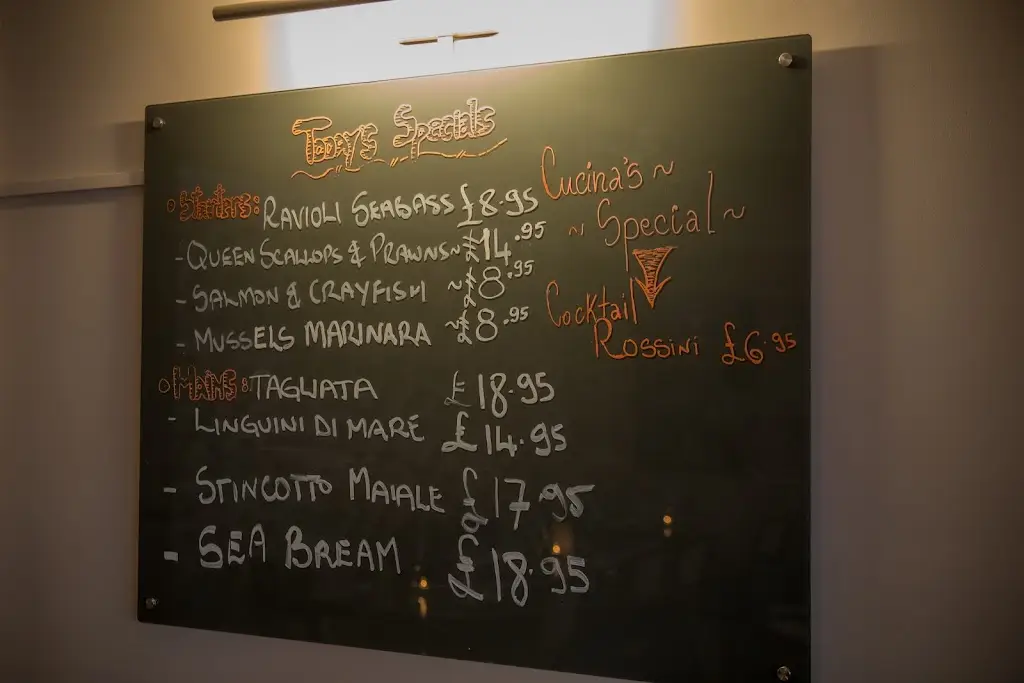 Today's Specials
Starters: RAVIOLI SEABASS £8.95
- QUEEN SCALLOPS & PRAWNS ~ £14.95
- SALMON & CRAYFISH ~ £8.95
- MUSSELS MARINARA ~ £8.95
Mains: TAGLIATA £18.95
- LINGUINI DI MARE £14.95
- STINCOTTO MAIALE £17.95
- SEA BREAM £18.95
Cucina's ~
~ Special ~
Cocktail
ROSSINI £6.95